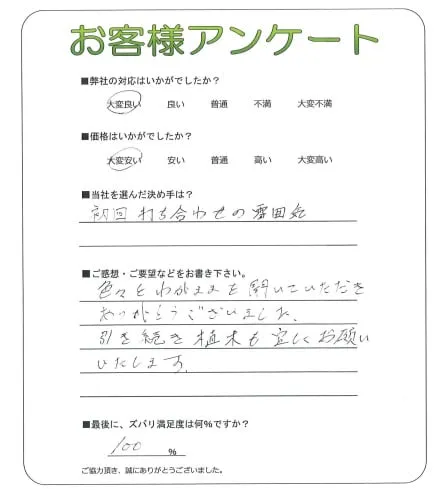 お客様アンケート
■弊社の対応はいかがでしたか?
大変良い 良い 普通 不満 大変不満
■価格はいかがでしたか?
大変安い 安い 普通 高い 大変高い
■当社を選んだ決め手は?
初回 打ち合わせの雰囲気
■ご感想・ご要望などをお書き下さい。
色々とわがままを聞いていただき
ありがとうございました、
引き続き植木も宜しくお願い
いたします。
■最後に、ズバリ満足度は何%ですか?
100 %
ご協力頂き、誠にありがとうございました。